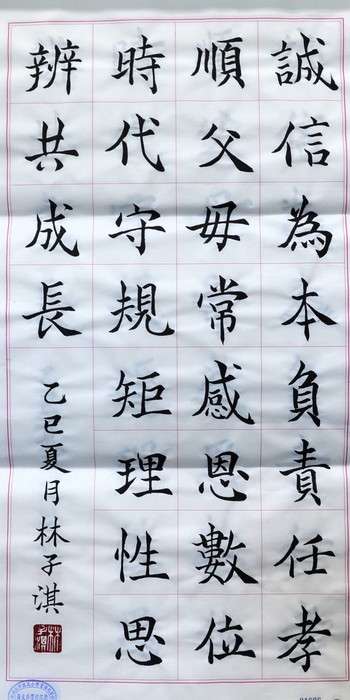 誠信為本負責任孝
順父母常感恩數位
時代守規矩理性思
辨共成長
乙巳夏月林子淇